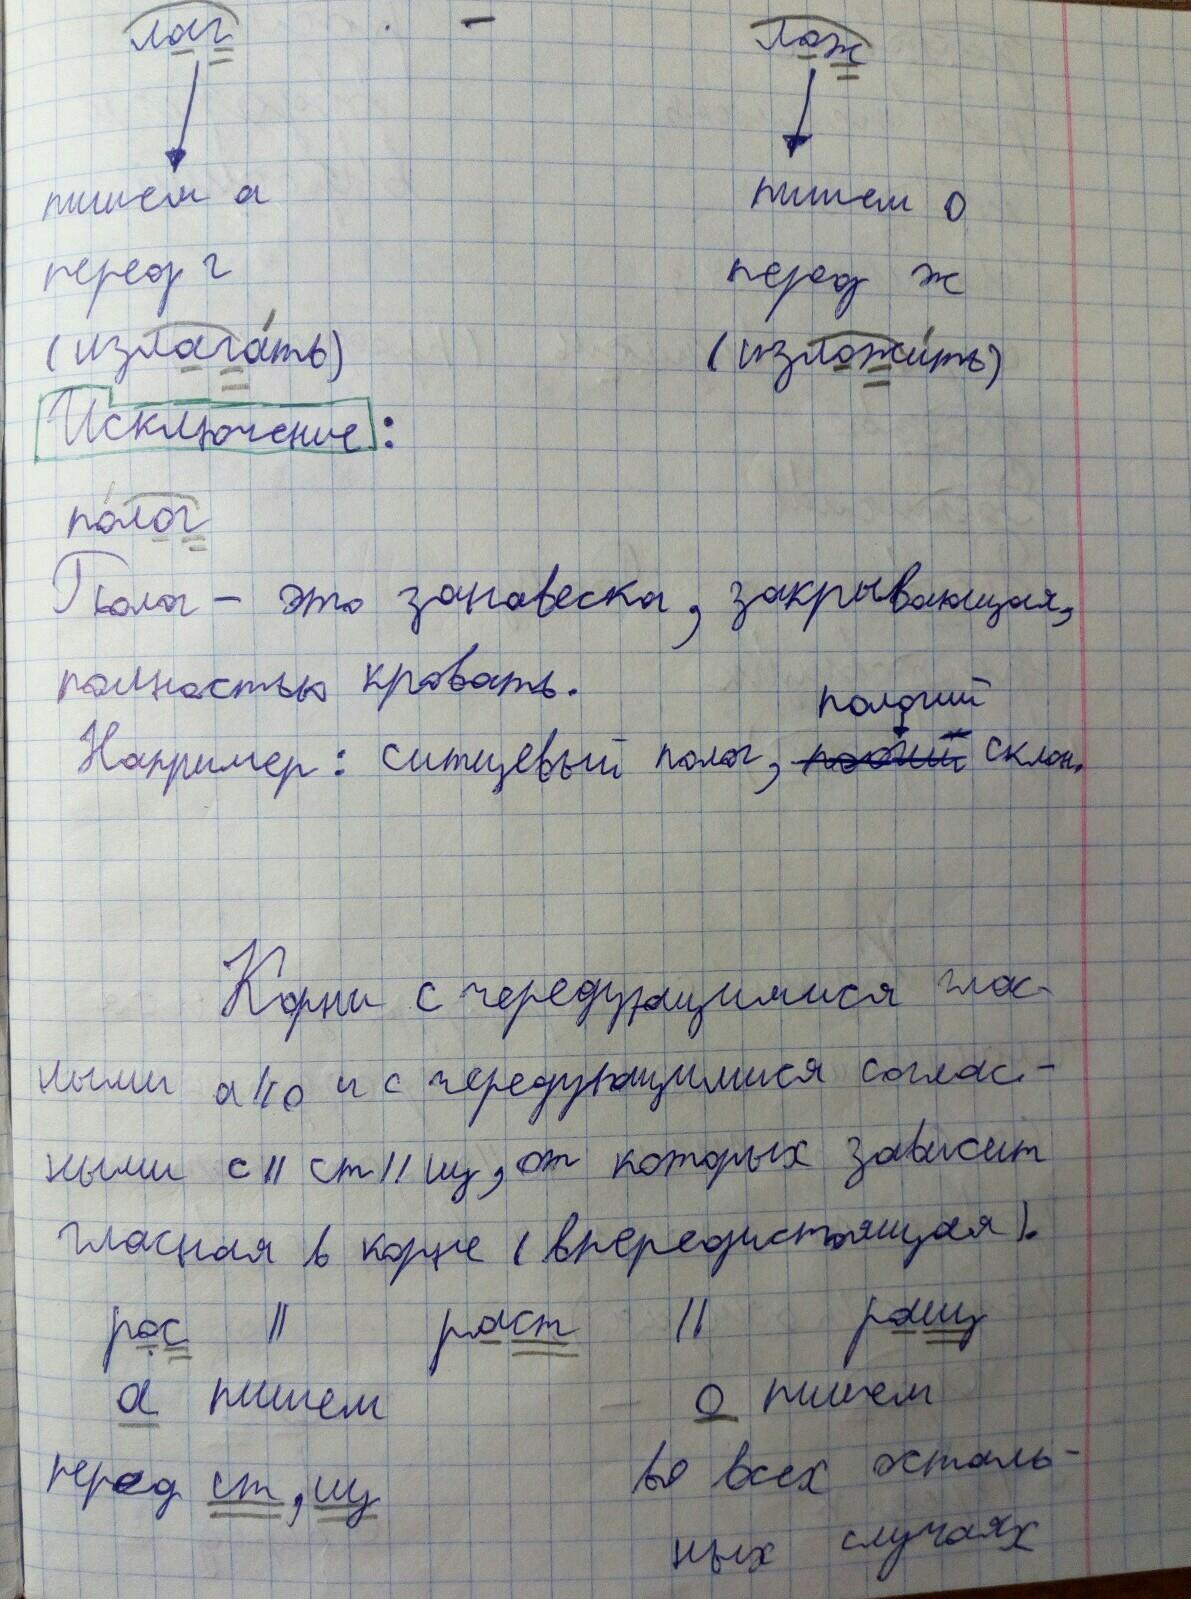 лаг - лож
пишем а пишем о
перед г перед ж
(излага́ть) (изложи́ть)
Исключение:
по́лог
Полог - это занавеска, закрывающая,
полностью кровать.
пологий
Например: ситцевый полог, склон.
Корни с чередующимися глас-
ными а//о и с чередующимися соглас-
ными с // ст // щ, от которых зависит
гласная в корне (впередистоящая).
рос // раст // ращ
а пишем о пишем
перед ст, щ во всех осталь-
ных случаях